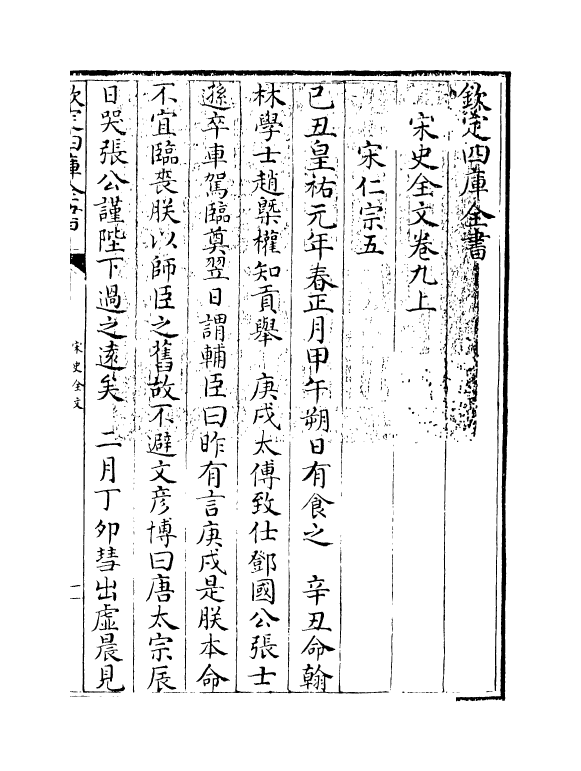 欽定四庫全書
宋史全文卷九上
宋仁宗五
己丑皇祐元年春正月甲午朔日有食之 辛丑命翰
林學士趙槩權知貢舉 庚戌太傅致仕鄧國公張士
遜卒車駕臨奠翌日謂輔臣曰昨有言庚戌是朕本命
不宜臨喪朕以師臣之舊故不避文彦博曰唐太宗辰
日哭張公謹陛下過之遠矣 二月丁夘彗出虛晨見
欽定四庫全書
宋史全文
一